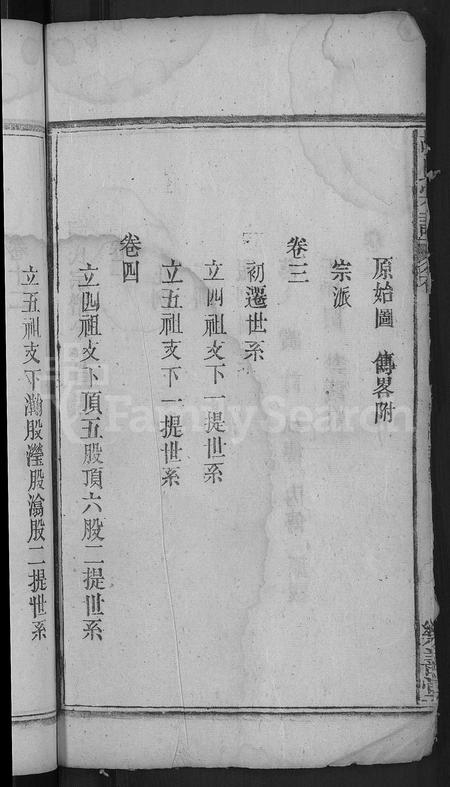 原始圖 傳畧附
宗派
卷三
初遷世系
立四祖支下一提世系
立五祖支下一提世系
卷四
立四祖支下頂五股頂六股二提世系
立五祖支下瀚股瀅股瀹股二提世系
FamilySearch